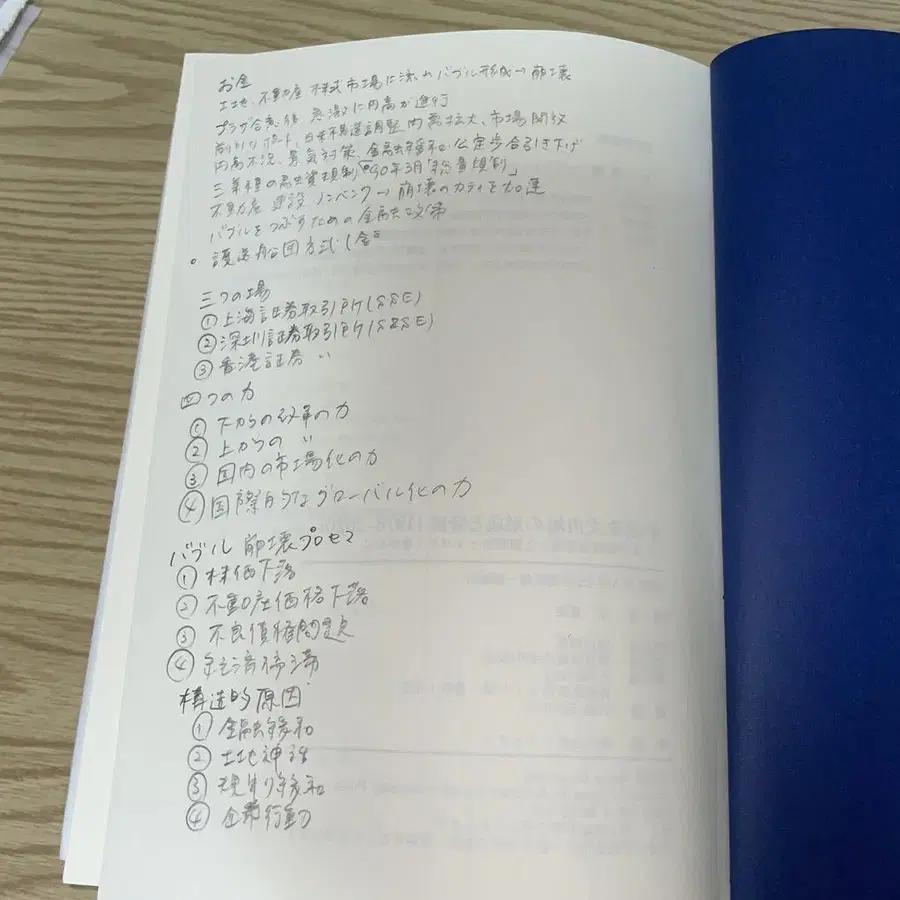 お金
土地、不動産 株式市場に流れバブル形成→崩壊
プラザ合意後 急激に円高が進行
前川リポート、日米不均衡調整 内需拡大、市場開放
円高不況、景気対策、金融緩和 公定歩合引き下げ
三業種の融資規制 90年3月「総量規制」
不動産 建設 ノンバンク→崩壊のカティを加速
バブルをつぶすための金融政策
。護送船団方式(金
三つの場
① 上海証券取引所(SSE)
② 深圳証券取引所(SZSE)
③ 香港証券 〃
四つの力
① 下からの改革の力
② 上からの 〃
③ 国内の市場化の力
④ 国際的なグローバル化の力
バブル 崩壊プロセス
① 株価下落
② 不動産価格下落
③ 不良債権問題
④ 経済停滞
構造的原因
① 金融緩和
② 土地神話
③ 規制緩和
④ 企業行動